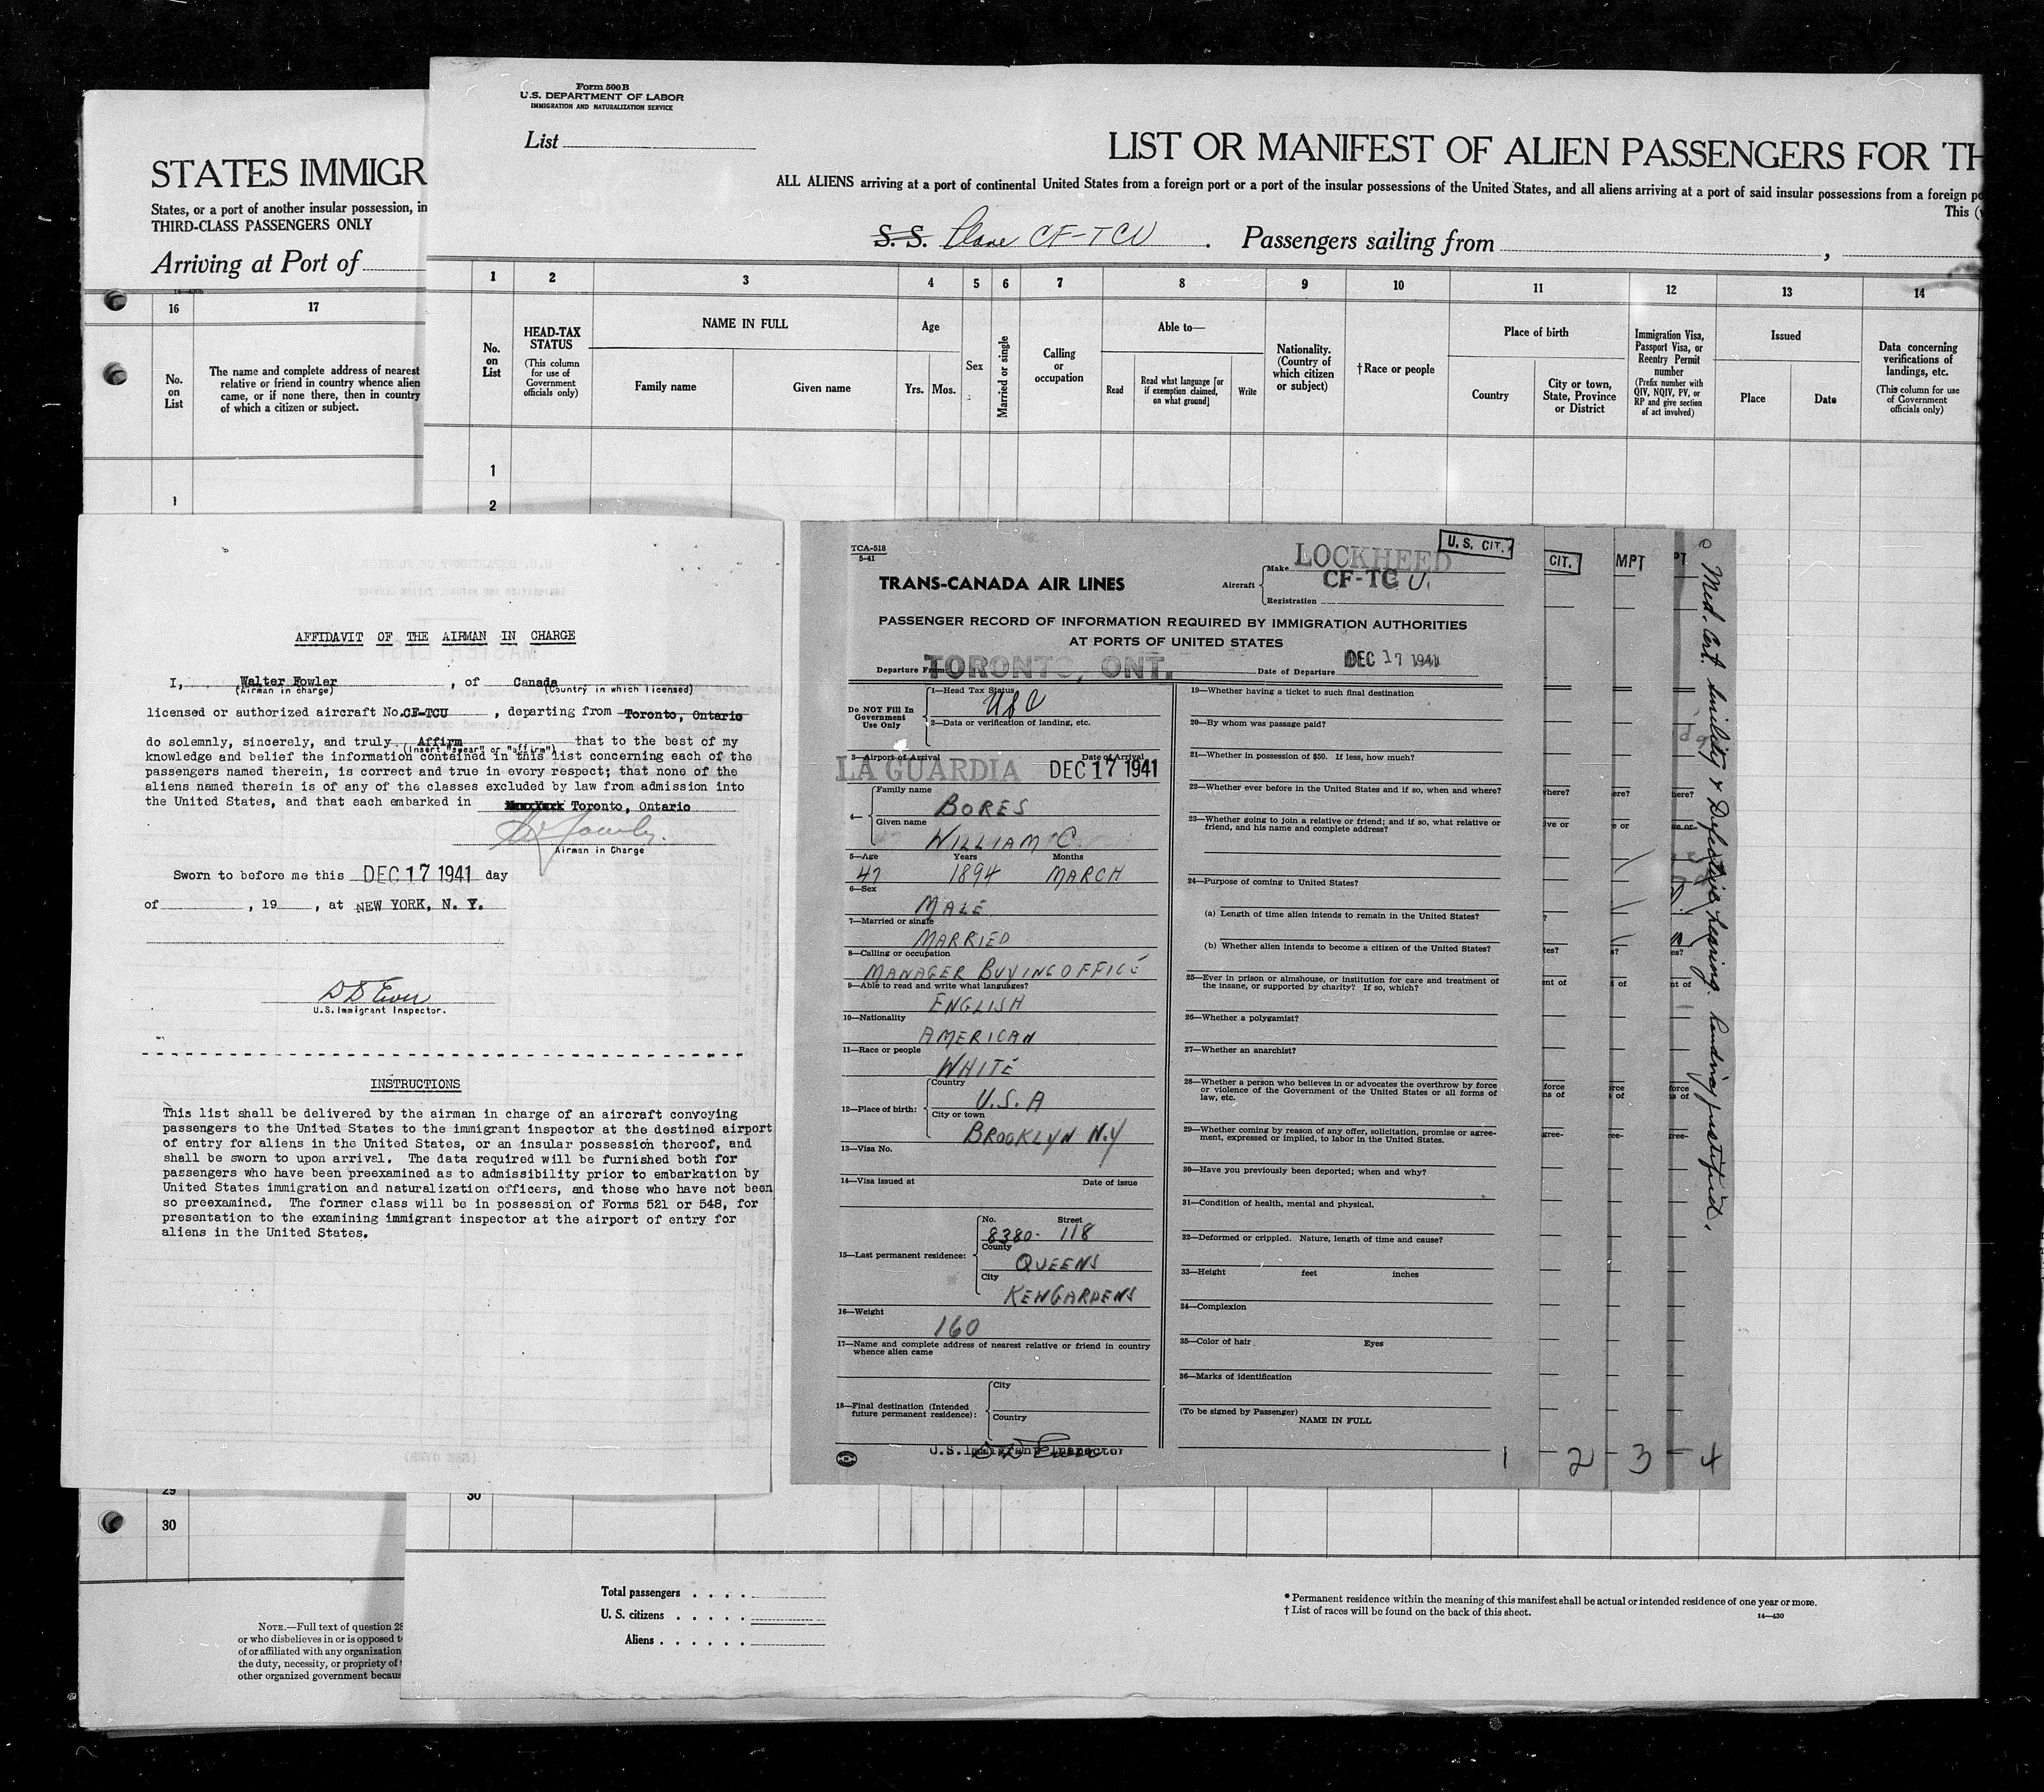 Form 500 B
U.S. DEPARTMENT OF LABOR
IMMIGRATION AND NATURALIZATION SERVICE
List
LIST OR MANIFEST OF ALIEN PASSENGERS FOR TH
ALL ALIENS arriving at a port of continental United States from a foreign port or a port of the insular possessions of the United States, and all aliens arriving at a port of said insular possessions from a foreign po
This (
S. S. Plane CF-TCU . Passengers sailing from ,
STATES IMMIGR
States, or a port of another insular possession, in
THIRD-CLASS PASSENGERS ONLY
Arriving at Port of
16 17
No. on List
The name and complete address of nearest
relative or friend in country whence alien
came, or if none there, then in country
of which a citizen or subject.
1
1 2 3 4 5 6 7 8 9 10 11 12 13 14
No. on List
HEAD-TAX STATUS
(This column for use of Government officials only)
NAME IN FULL
Family name Given name
Age
Yrs. Mos.
Sex
Married or single
Calling or occupation
Able to—
Read
Read what language [or if exemption claimed, on what ground]
Write
Nationality. (Country of which citizen or subject)
†Race or people
Place of birth
Country
City or town, State, Province or District
Immigration Visa, Passport Visa, or Reentry Permit number
(Prefix number with QIV, NQIV, PV, or RP and give section of act involved)
Issued
Place Date
Data concerning verifications of landings, etc.
(This column for use of Government officials only)
1
2
AFFIDAVIT OF THE AIRMAN IN CHARGE
I, Walter Fowler , of Canada
(Airman in charge) (Country in which licensed)
licensed or authorized aircraft No. CF-TCU , departing from Toronto, Ontario
do solemnly, sincerely, and truly Affirm that to the best of my
(Insert "swear" or "affirm")
knowledge and belief the information contained in this list concerning each of the
passengers named therein, is correct and true in every respect; that none of the
aliens named therein is of any of the classes excluded by law from admission into
the United States, and that each embarked in Toronto, Ontario
Airman in Charge
Sworn to before me this DEC 17 1941 day
of , 19 , at NEW YORK, N. Y.
U.S. Immigrant Inspector.
INSTRUCTIONS
This list shall be delivered by the airman in charge of an aircraft convoying
passengers to the United States to the immigrant inspector at the destined airport
of entry for aliens in the United States, or an insular possession thereof, and
shall be sworn to upon arrival. The data required will be furnished both for
passengers who have been preexamined as to admissibility prior to embarkation by
United States immigration and naturalization officers, and those who have not been
so preexamined. The former class will be in possession of Forms 521 or 548, for
presentation to the examining immigrant inspector at the airport of entry for
aliens in the United States.
TCA-518
5-41
U. S. CIT.
TRANS-CANADA AIR LINES
Aircraft
Make LOCKHEED
Registration CF-TCU.
PASSENGER RECORD OF INFORMATION REQUIRED BY IMMIGRATION AUTHORITIES
AT PORTS OF UNITED STATES
Departure From TORONTO, ONT. Date of Departure DEC 17 1941
Do NOT Fill In Government Use Only
1—Head Tax Status USC
2—Data or verification of landing, etc.
3—Airport of Arrival Date of Arrival
LA GUARDIA DEC 17 1941
4—
Family name
BORES
Given name
WILLIAM C
5—Age Years Months
47 1894 MARCH
6—Sex
MALE
7—Married or single
MARRIED
8—Calling or occupation
MANAGER BUYING OFFICE
9—Able to read and write what languages?
ENGLISH
10—Nationality
AMERICAN
11—Race or people
WHITE
12—Place of birth:
Country
U.S.A
City or town
BROOKLYN N.Y
13—Visa No.
14—Visa issued at Date of issue
15—Last permanent residence:
No. Street
8380- 118
County
QUEENS
City
KEW GARDENS
16—Weight
160
17—Name and complete address of nearest relative or friend in country
whence alien came
18—Final destination (Intended
future permanent residence):
City
Country
U.S. Immigrant Inspector
19—Whether having a ticket to such final destination
20—By whom was passage paid?
21—Whether in possession of $50. If less, how much?
22—Whether ever before in the United States and if so, when and where?
23—Whether going to join a relative or friend; and if so, what relative or
friend, and his name and complete address?
24—Purpose of coming to United States?
(a) Length of time alien intends to remain in the United States?
(b) Whether alien intends to become a citizen of the United States?
25—Ever in prison or almshouse, or institution for care and treatment of
the insane, or supported by charity? If so, which?
26—Whether a polygamist?
27—Whether an anarchist?
28—Whether a person who believes in or advocates the overthrow by force
or violence of the Government of the United States or all forms of
law, etc.
29—Whether coming by reason of any offer, solicitation, promise or agree-
ment, expressed or implied, to labor in the United States.
30—Have you previously been deported; when and why?
31—Condition of health, mental and physical.
32—Deformed or crippled. Nature, length of time and cause?
33—Height feet inches
34—Complexion
35—Color of hair Eyes
36—Marks of identification
(To be signed by Passenger)
NAME IN FULL
1 2 - 3 - 4
CIT.
MPT
PT
Med. Cert. senility & Defective hearing.
29
30
30
Total passengers . . . .
U. S. citizens . . . . .
Aliens . . . . . .
NOTE.—Full text of question 28
or who disbelieves in or is opposed t
of or affiliated with any organization
the duty, necessity, or propriety of
other organized government becaus
* Permanent residence within the meaning of this manifest shall be actual or intended residence of one year or more.
† List of races will be found on the back of this sheet.
14—430